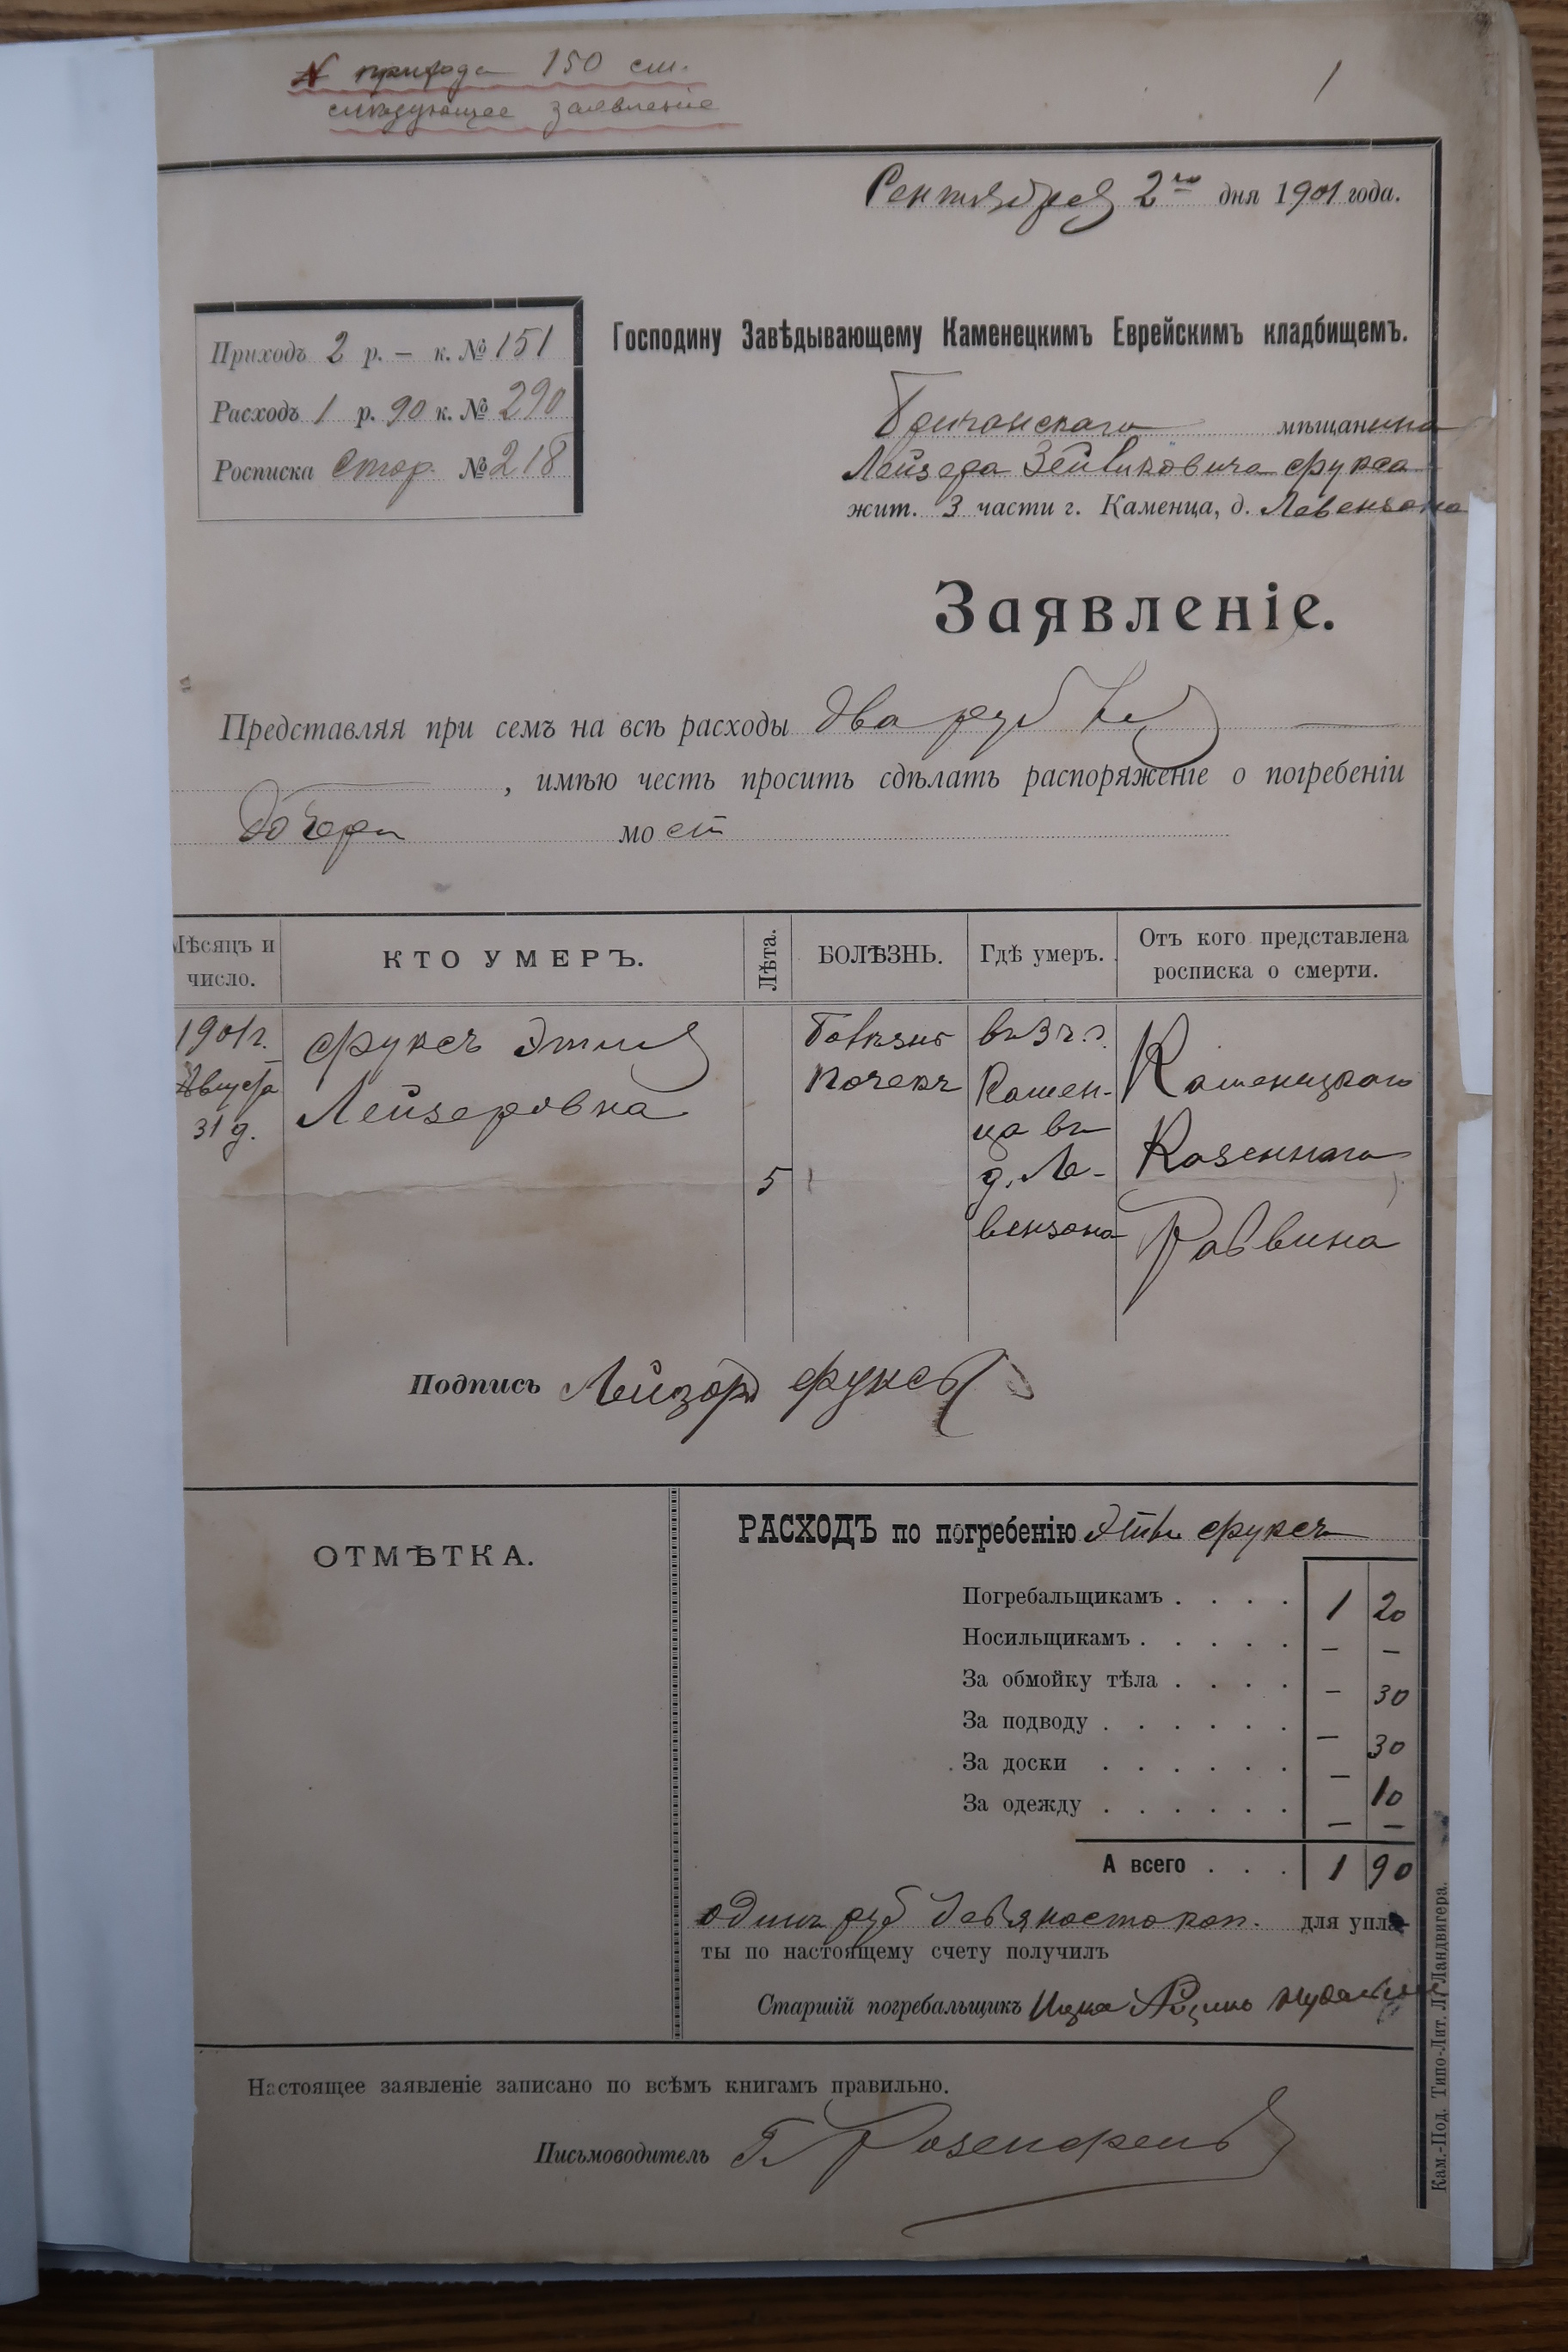 № прихода 150 см.
следующее заявленіе
1
Сентября 2го дня 1901 года.
Приходъ 2 р. – к. № 151
Расходъ 1 р. 90 к. № 290
Росписка стор. № 218
Господину Завѣдывающему Каменецкимъ Еврейскимъ кладбищемъ.
Бричанскаго мѣщанина
Лейзера Зейликовича Фукса
жит. 3 части г. Каменца, д. Левензона
Заявленіе.
Представляя при семъ на всѣ расходы два руб
, имѣю честь просить сдѣлать распоряженіе о погребеніи
дочери моей
Мѣсяцъ и число.
КТО УМЕРЪ.
Лѣта.
БОЛѢЗНЬ.
Гдѣ умеръ.
Отъ кого представлена росписка о смерти.
1901 г.
Августа
31 д.
Фуксъ Этля
Лейзеровна
5
Болѣзнь
почекъ
въ 3 ч. г.
Камен-
ца въ
д. Ле-
вензона
Каменецкаго
Казеннаго
Раввина
Подпись Лейзоръ Фуксъ
ОТМѢТКА.
РАСХОДЪ по погребенію Этли Фуксъ
Погребальщикамъ . . . . 1 20
Носильщикамъ . . . . . – –
За обмойку тѣла . . . . – 30
За подводу . . . . . . – 30
За доски . . . . . . – 10
За одежду . . . . . . – –
А всего . . . 1 90
одинъ руб девяносто коп. для упла-
ты по настоящему счету получилъ
Старшій погребальщикъ Ицко
Настоящее заявленіе записано по всѣмъ книгамъ правильно.
Письмоводитель Г. Розенфельд
Кам.-Под. Типо-Лит. Л. Ландвигера.